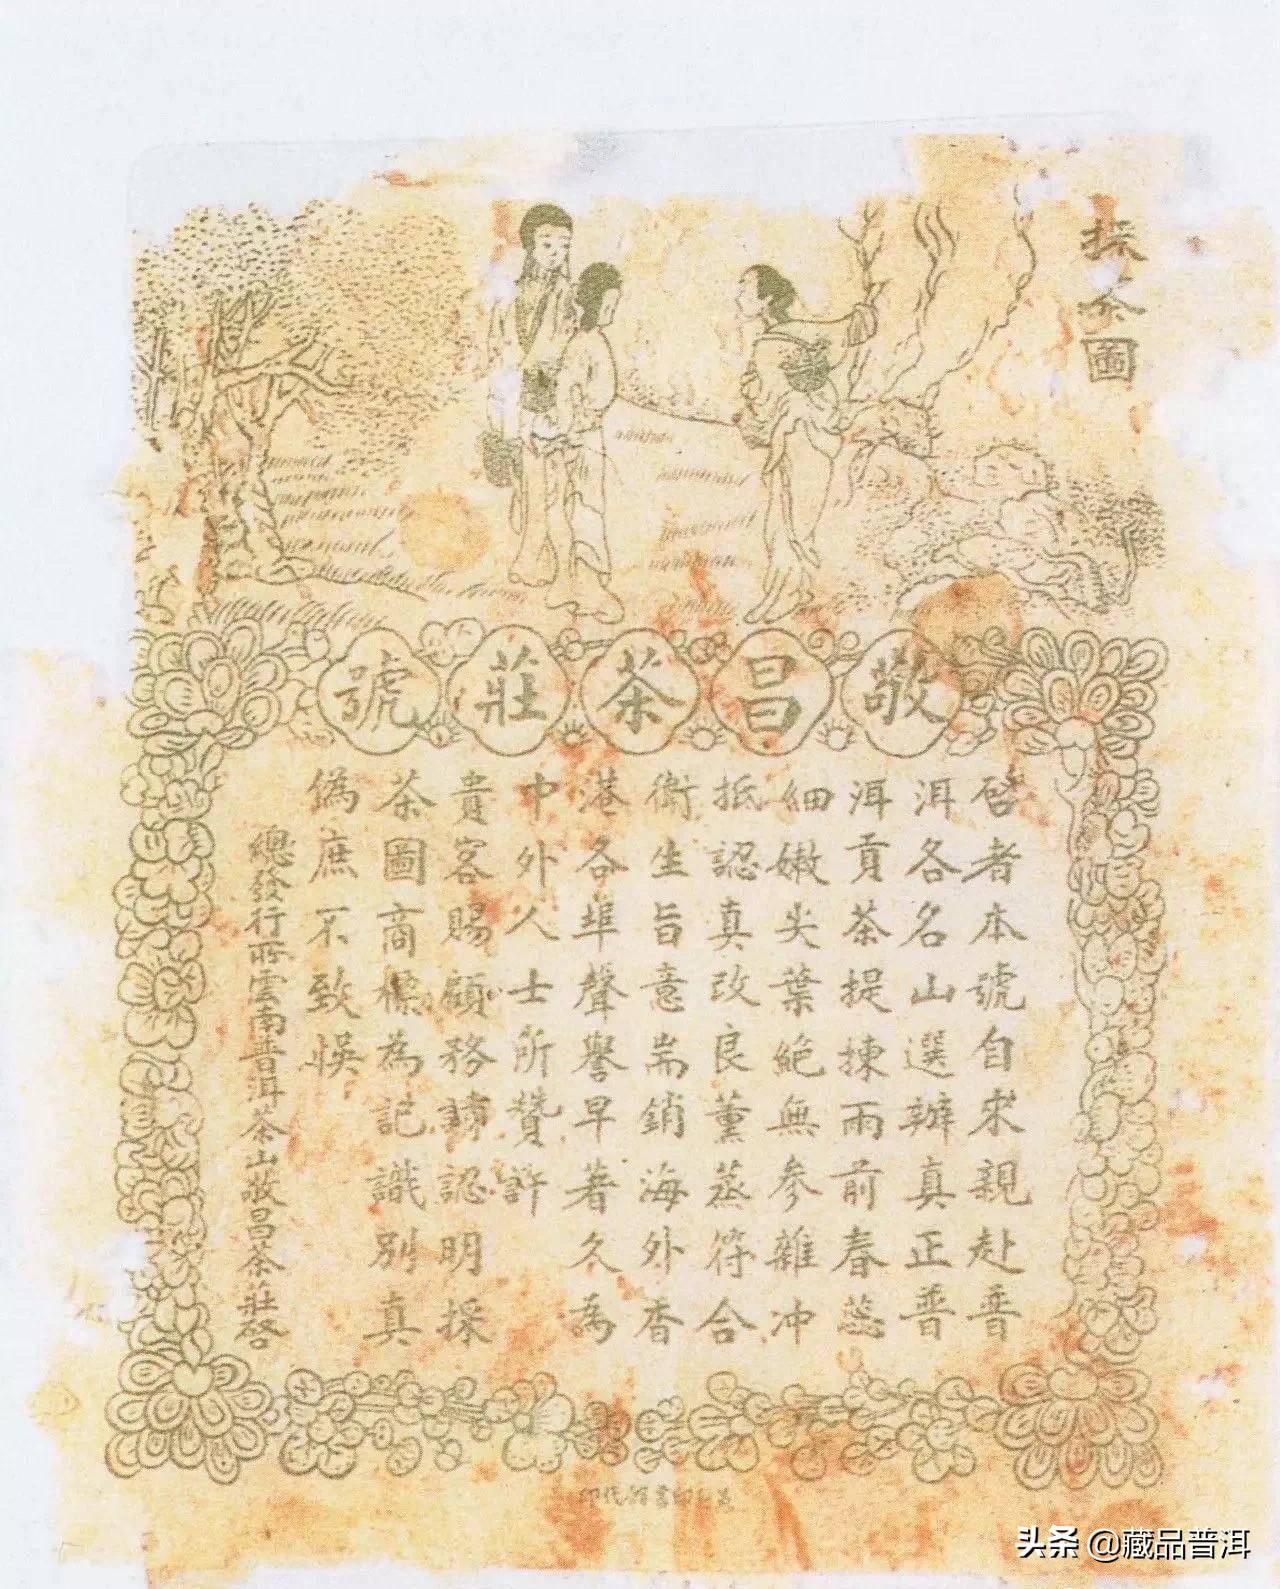 採茶圖
敬昌茶莊號
啓者本號自來親赴普
洱各名山選辦真正普
洱貢茶提揀雨前春蕊
細嫩尖葉絕無參雜冲
抵認真改良薰蒸符合
衛生旨意耑銷海外香
港各埠聲譽早著久爲
中外人士所贊許
貴客賜顧務請認明採
茶圖商標為記識別真
偽庶不致悞
總發行所雲南普洱茶山敬昌茶莊啓
头条 @藏品普洱